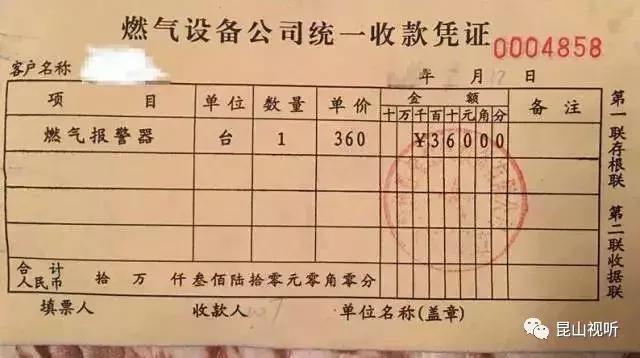 燃气设备公司统一收款凭证 0004858
客户名称 年 月 17 日
项目 单位 数量 单价 金额 备注
十万千百十元角分
燃气报警器 台 1 360 ¥36000
合计人民币 拾 万 仟叁佰陆拾零元零角零分
填票人 收款人 单位名称(盖章)
第一联存根联 第二联收据联
昆山视听